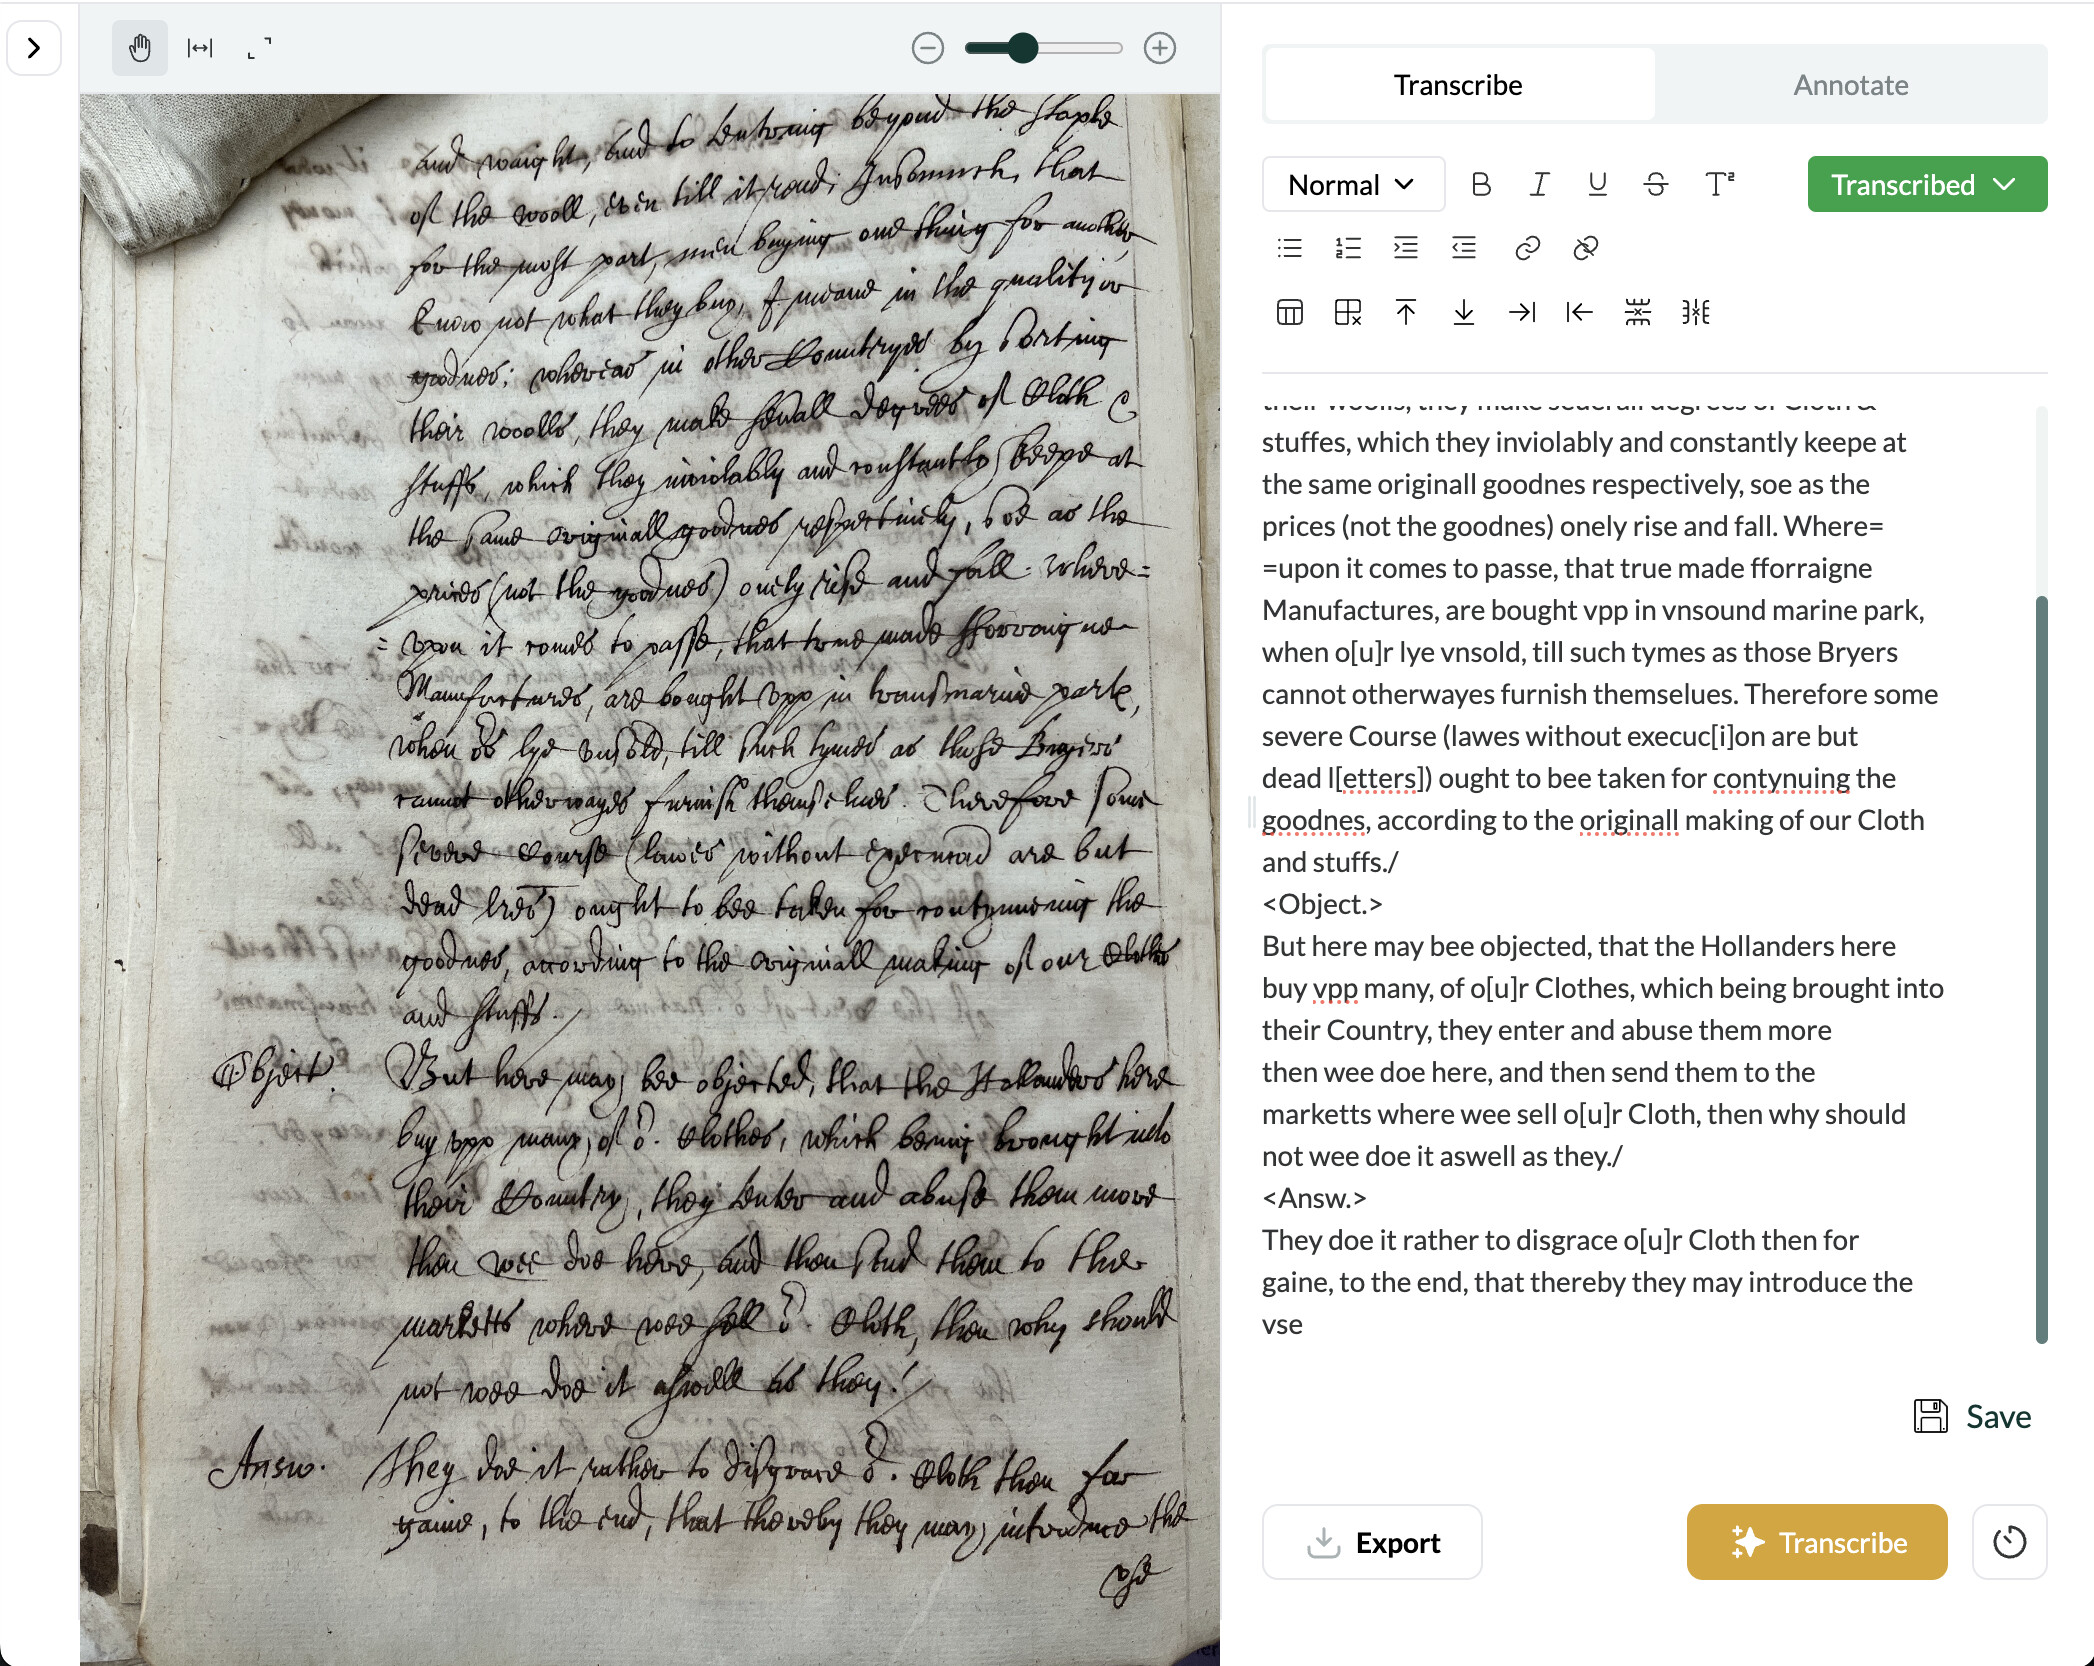 and waight, and to tentring beyond the staple
of the wooll, even till it rend; Insomuch, that
for the most part, men buying one thing for another
know not what they buy, I meane in the quality or
goodnes; whereas in other Countryes by sorting
their woolls, they make seuerall degrees of Cloth &
stuffs, which they inviolably and constantly keepe at
the same originall goodnes respectiuely, soe as the
prices (not the goodnes) onely rise and fall. Where=
=vpon it comes to passe, that true made fforraigne
Manufactures, are bought vpp in transmarine parts,
when or lye vnsold, till such tymes as those Buyers
cannot otherwayes furnish themselues. Therefore some
severe Course (lawes without execucon are but
dead lres) ought to bee taken for contynueing the
goodnes, according to the originall making of our Cloths
and stuffs./
Object.
But here may bee objected, that the Hollanders here
buy vpp many, of or. Clothes, which being brought into
their Country, they tenter and abuse them more
then wee doe here, and then send them to the
marketts where wee sell or. Cloth, then why should
not wee doe it aswell as they!/
Answ.
They doe it rather to disgrace or. Cloth then for
gaine, to the end, that thereby they may introduce the
vse
Transcribe
Annotate
Normal
B I U S T²
Transcribed
their woolls, they make seuerall degrees of Cloth &
stuffes, which they inviolably and constantly keepe at
the same originall goodnes respectively, soe as the
prices (not the goodnes) onely rise and fall. Where=
=upon it comes to passe, that true made fforraigne
Manufactures, are bought vpp in vnsound marine park,
when o[u]r lye vnsold, till such tymes as those Bryers
cannot otherwayes furnish themselues. Therefore some
severe Course (lawes without execuc[i]on are but
dead l[etters]) ought to bee taken for contynuing the
goodnes, according to the originall making of our Cloth
and stuffs./
<Object.>
But here may bee objected, that the Hollanders here
buy vpp many, of o[u]r Clothes, which being brought into
their Country, they enter and abuse them more
then wee doe here, and then send them to the
marketts where wee sell o[u]r Cloth, then why should
not wee doe it aswell as they./
<Answ.>
They doe it rather to disgrace o[u]r Cloth then for
gaine, to the end, that thereby they may introduce the
vse
Save
Export
Transcribe